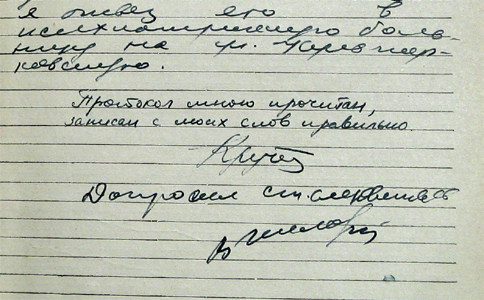 я отвез его в
психиатрическую боль-
ницу на ул.
ковскую.
Протокол мною прочитан,
записан с моих слов правильно.
Допросил ст. следователь